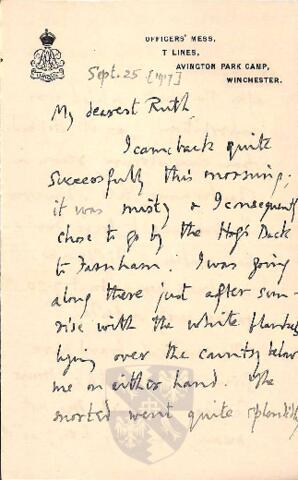 OFFICERS' MESS,
T LINES,
AVINGTON PARK CAMP,
WINCHESTER.
Sept. 25 [1917]
My dearest Ruth,
I came back quite
successfully this morning;
it was misty & I consequently
chose to go by the Hog's Back
to Farnham. I was going
along there just after sun-
rise with the white
lying over the country below
me on either hand. The
went quite splendidly